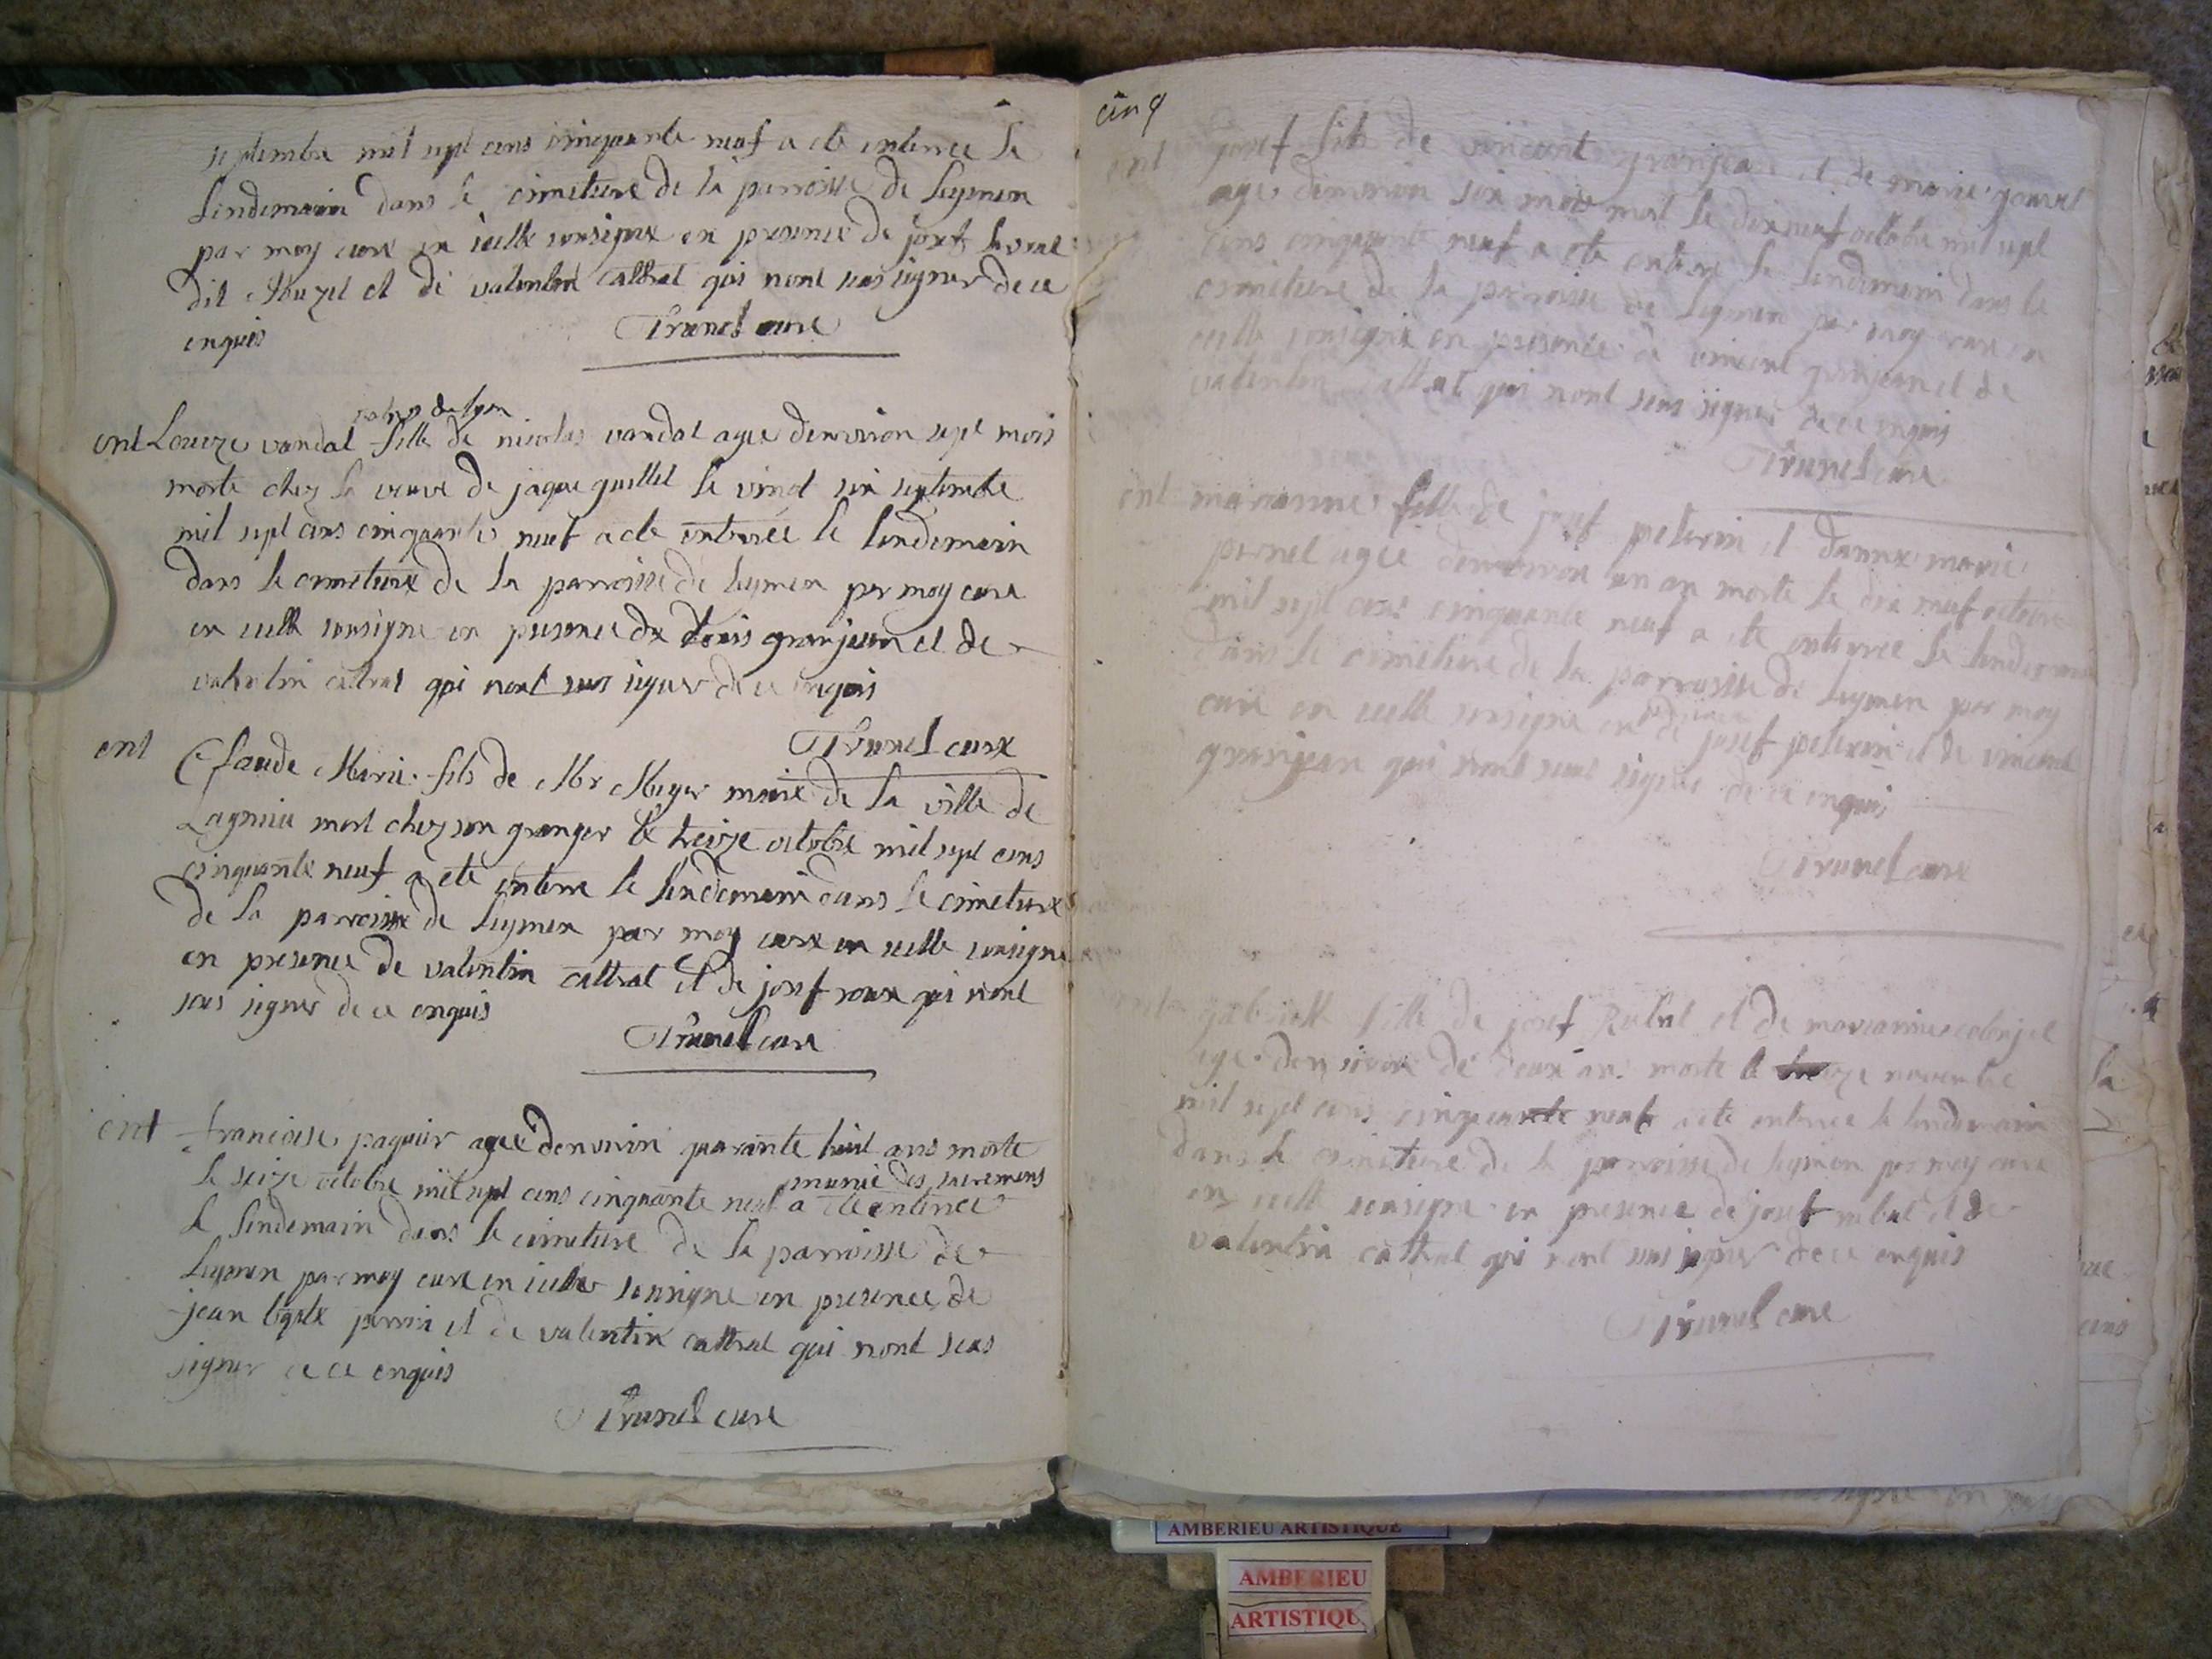 septembre mil sept cens cinquante neuf a ete enterree le
lendemain dans le cimetiere de la parroisse de leymen
par moy cure en icelle sousigne en presence de josef
dit Muzel et de valentin cattral qui nont seus signer de ce
enquis
Prunel cure
ent Louize vandal fille de nicolas vandal agee denviron sept mois
morte chez la veuve de jaque guillet le vint six septembre
mil sept cens cinquante neuf a ete enterrée le lendemain
dans le cimetiere de la parroisse de leymen par moy cure
en icelle sousigne en presence de Louis granjean et de
valentin cattral qui nont seus signer de ce enquis
Prunel cure
ent
Claude Marie fils de Mr Meyer maire de la ville de
Lagnieu mort chez son granger le treize octobre mil sept cens
cinquante neuf a ete enterre le lendemain dans le cimetiere
de la parroisse de leymen par moy cure en icelle sousigne
en presence de valentin cattral et de josef roux qui nont
seus signer de ce enquis
Prunel cure
ent francoise paquier agee denviron quarante huit ans morte
munie des sacremens
le seize octobre mil sept cens cinquante neuf a ete enterree
le lendemain dans le cimetiere de la parroisse de
Leymen par moy cure en icelle sousigne en presence de
jean perrin et de valentin cattral qui nont seus
signer de ce enquis
Prunel cure
cinq
ent josef fils de vincent granjean et de marie
age denviron six mois mort le dix neuf octobre mil sept
cens cinquante neuf a ete enterre le lendemain dans le
cimetiere de la parroisse de Leymen par moy cure en
icelle sousigne en presence de vincent granjean et de
valentin cattral qui nont seus signer de ce enquis
Prunel cure
ent marianne fille de josef pelerin et danne marie
pernel agee denviron un an morte le dix neuf octobre
mil sept cens cinquante neuf a ete enterree le lendemain
dans le cimetiere de la parroisse de leymen par moy
cure en icelle sousigne en presence de josef pelerin et de vincent
granjean qui nont seus signer de ce enquis
Prunel cure
gabrielle fille de josef Rubat et de marianne
age denviron de deux ans morte le novembre
mil sept cens cinquante neuf a ete enterree le lendemain
dans le cimetiere de la parroisse de leymen par moy cure
en icelle sousigne en presence de josef rubat et de
valentin cattral qui nont seus signer de ce enquis
Prunel cure
la
cens
AMBERIEU ARTISTIQUE
AMBERIEU
ARTISTIQU